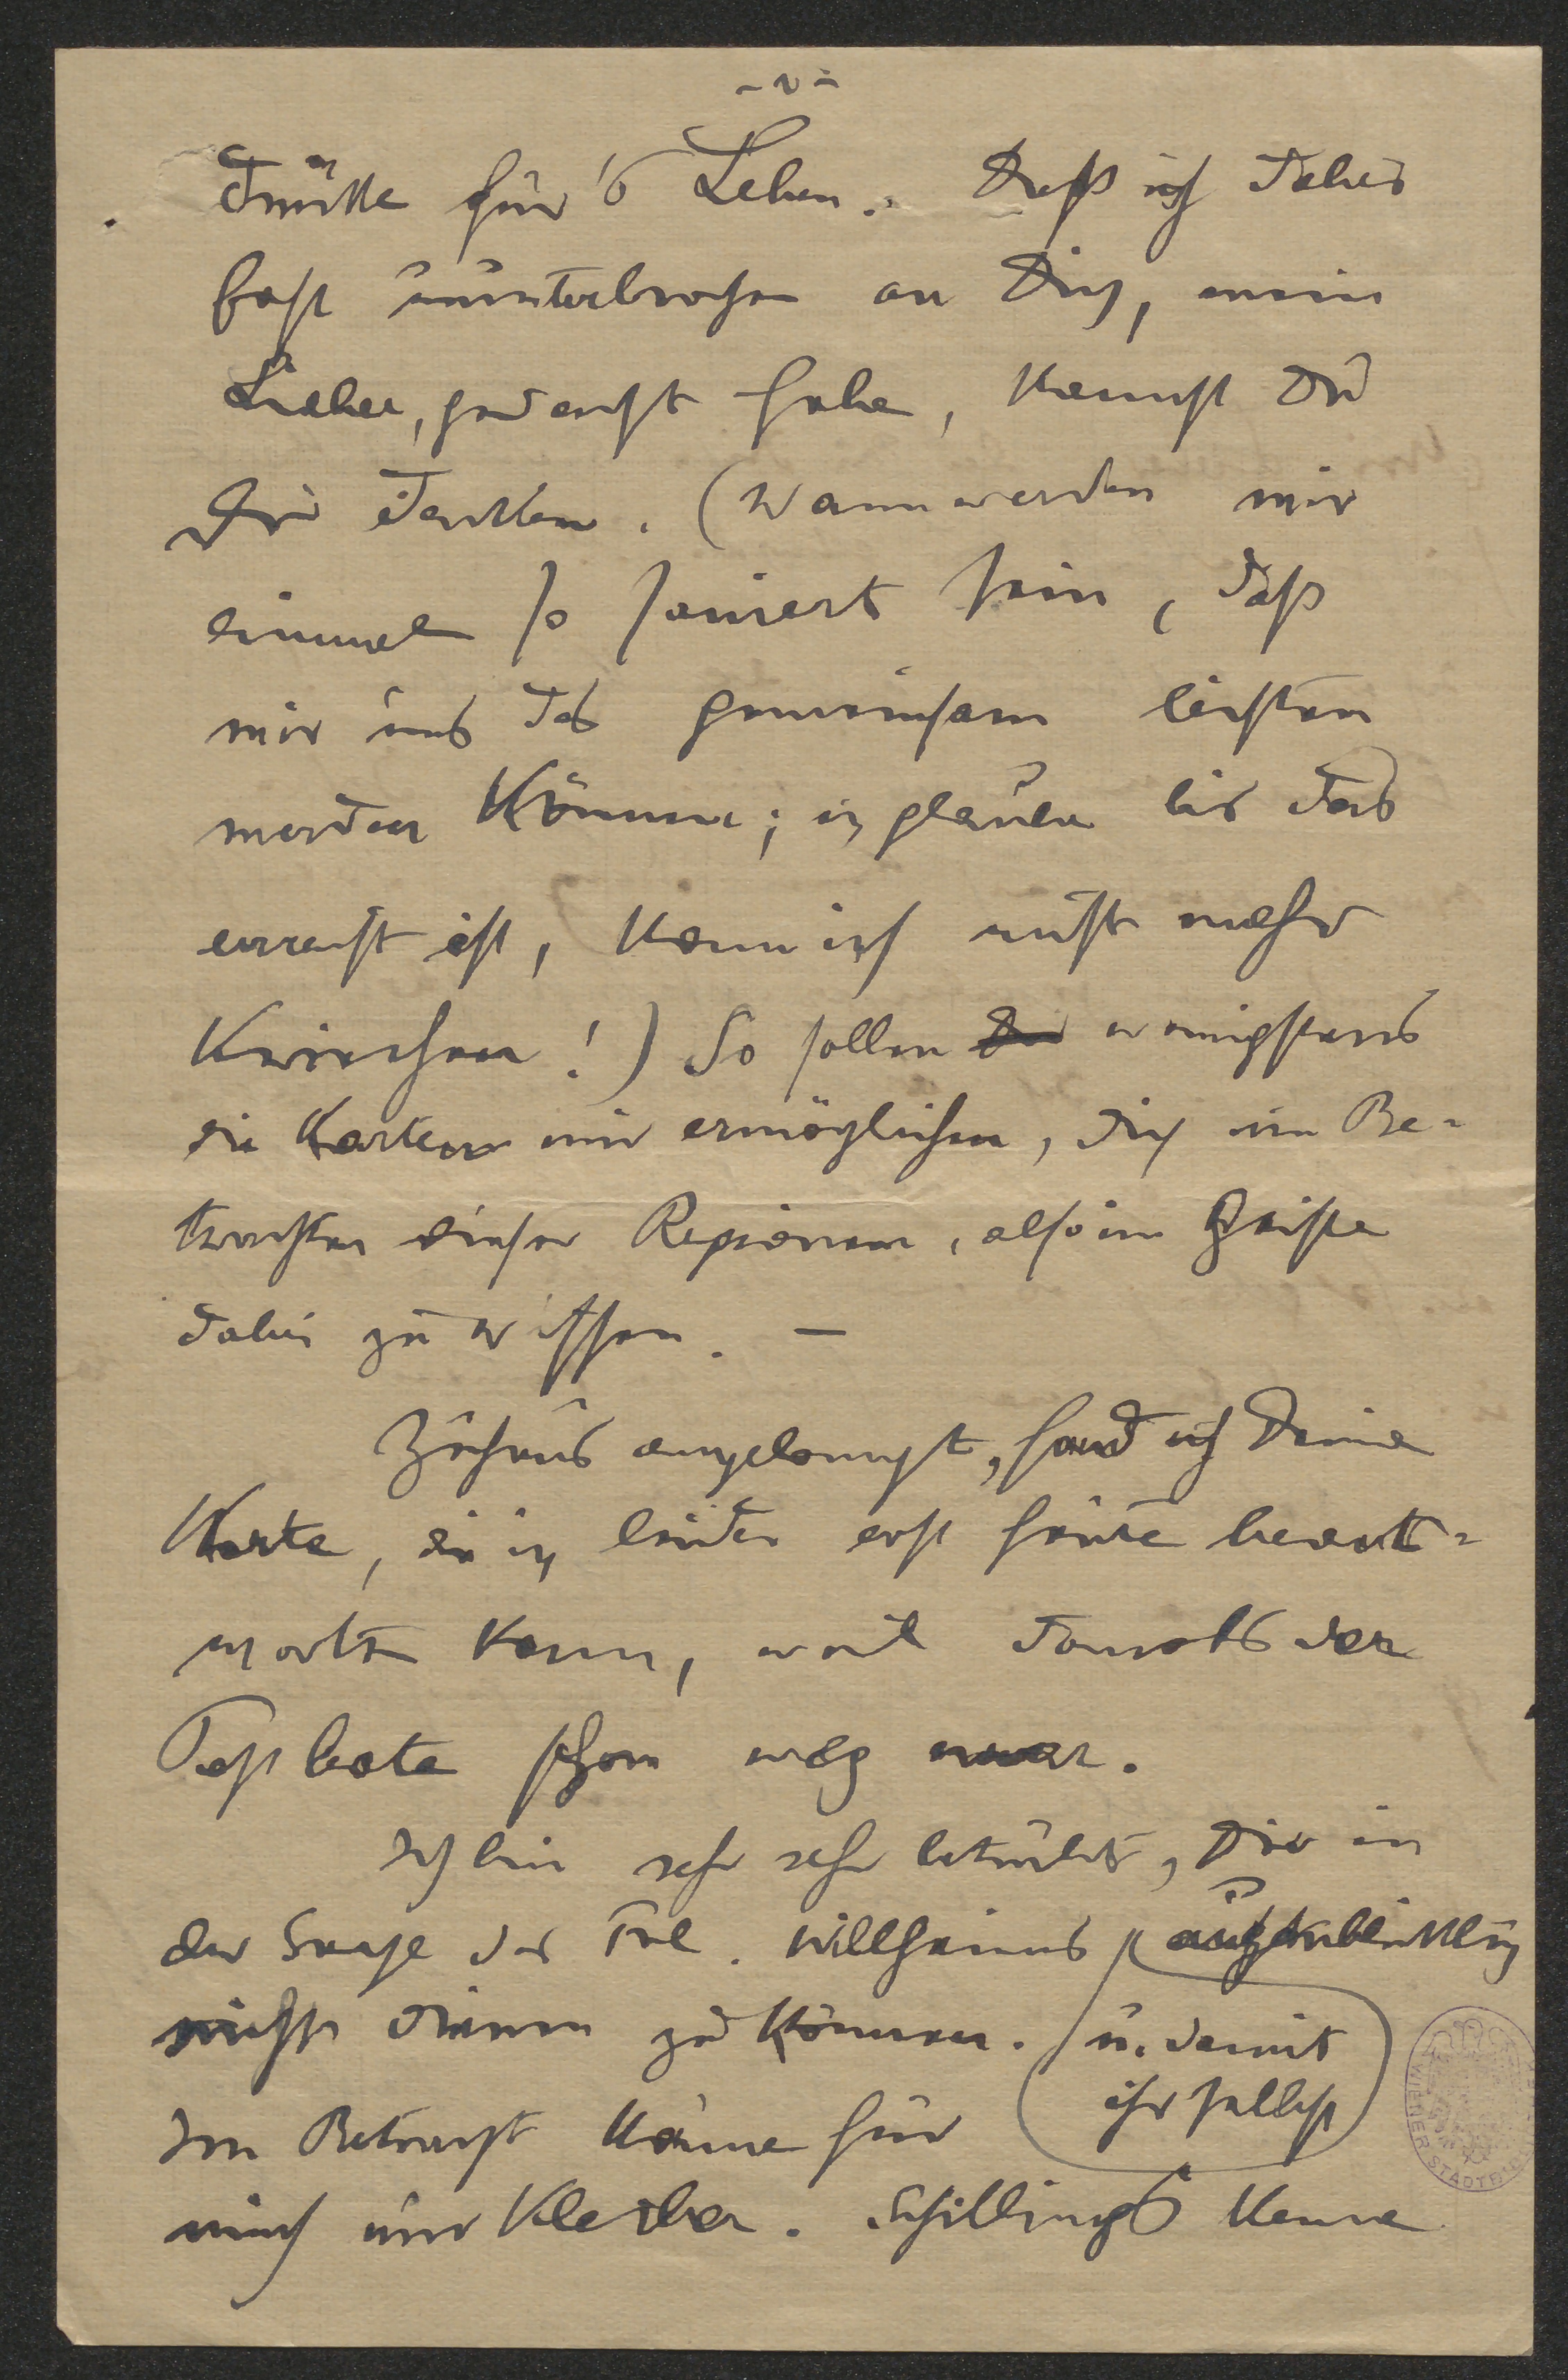 - 2 -
drücke für's Leben. Daß ich dabei
fast ununterbrochen an Dich, mein
Lieber, gedacht habe, kannst Du
Dir denken. (Wann werden wir
einmal so saniert sein, daß
wir uns das gemeinsam leisten
werden können; ich glaube bis das
erreicht ist, kann ich nicht mehr
kriechen!) So sollen wenigstens
die Karten mir ermöglichen, Dich im Be-
trachten dieser Regionen, also im Geiste
dabei zu wissen. —
Zuhaus angelangt, fand ich Deine
Karte, die ich leider erst heute beant-
worten kann, weil damals der
Postbote schon weg war.
Ich bin sehr sehr betrübt, Dir in
der Frage des Frl. Willheims augenblicklich
nichts dienen zu können. u. damit
ihr selbst
In Betracht käme für
mich nur Kleiber. Schillings kenne
WIENER STADTB